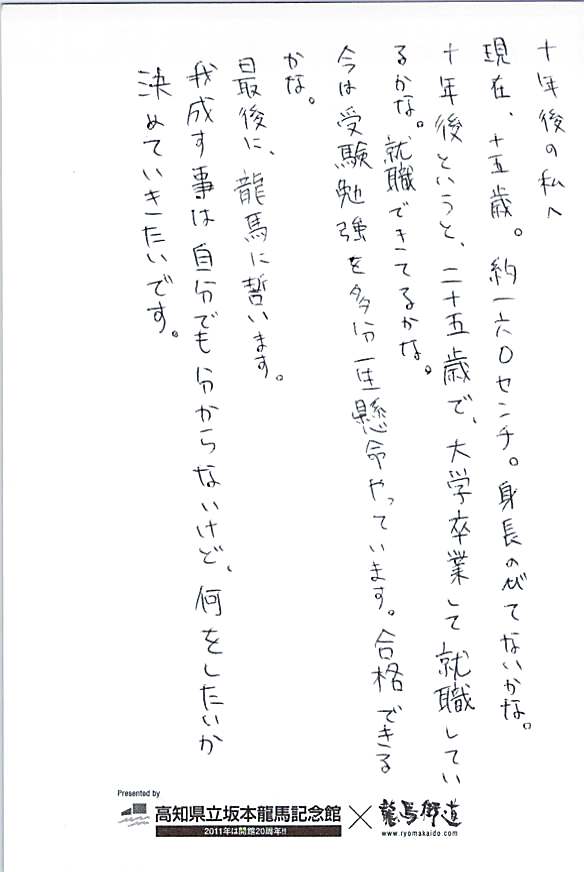 十年後の私へ
現在、十五歳。約一六〇センチ。身長のびてないかな。
十年後というと、二十五歳で、大学卒業して就職してい
るかな。就職できてるかな。
今は受験勉強を多分一生懸命やっています。合格できる
かな。
最後に、龍馬に誓います。
我成す事は自分でも分からないけど、何をしたいか
決めていきたいです。
Presented by
高知県立坂本龍馬記念館 × 龍馬街道
2011年は開館20周年!!
www.ryomakaido.com